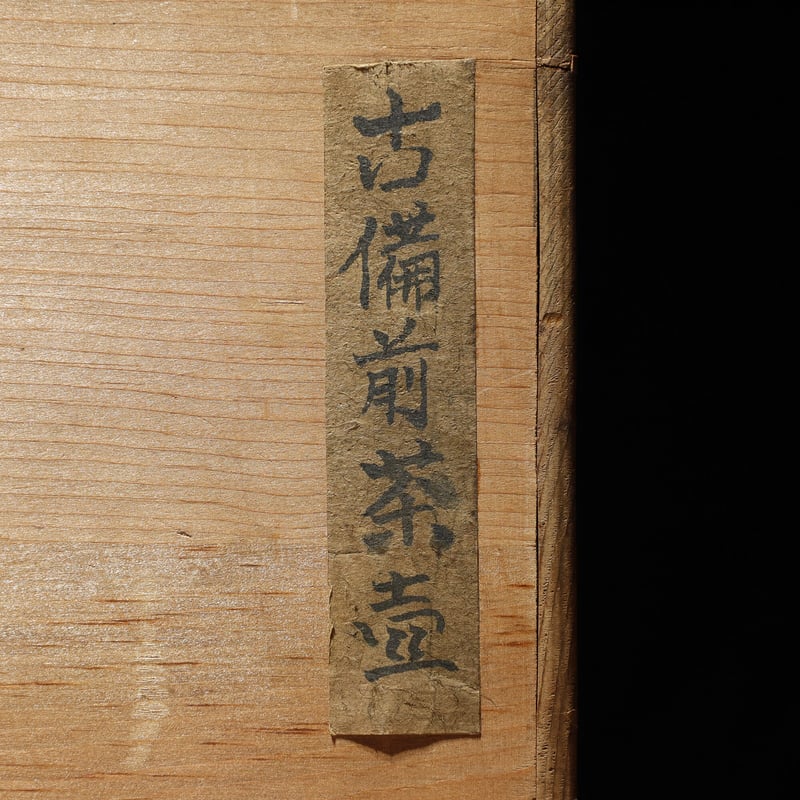 古備前茶壺